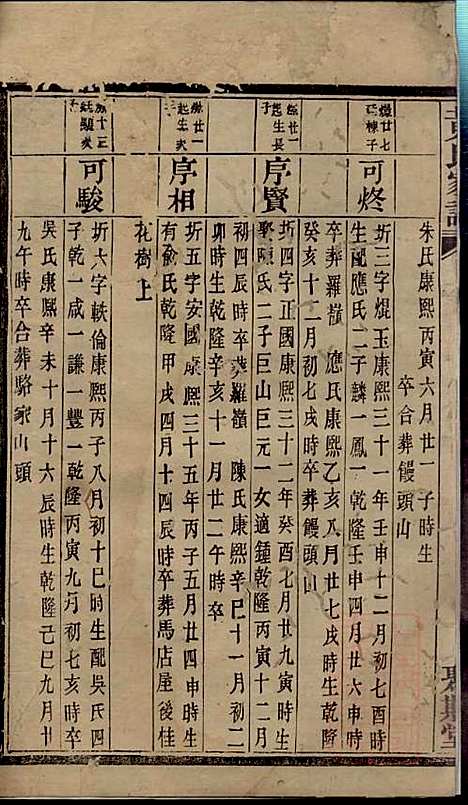 朱氏康熙丙寅六月廿一子時生
卒合葬饅頭山
可炵
圻三字焜玉康熙三十一年壬申十二月初七酉時
生配應氏二子麟一鳳一乾隆壬申四月廿六申時
卒葬羅嶺 應氏康熙乙亥八月廿七戌時生乾隆
癸亥十二月初七戌時卒葬饅頭山
序賢
圻四字正國康熙三十二年癸酉七月廿九寅時生
娶陳氏二子巨山巨元一女適鍾乾隆丙寅十二月
初四辰時卒葬羅嶺 陳氏康熙辛巳十一月初二
卯時生乾隆辛亥十一月廿二午時卒
序相
圻五字安國康熙三十五年丙子五月廿四申時生
有俞氏乾隆甲戌四月十四辰時卒葬馬店屋後桂
花樹上
可駿
圻六字軼倫康熙丙子八月初十巳時生配吳氏四
子乾一咸一謙一豐一乾隆丙寅九月初七亥時卒
吳氏康熙辛未十月十六辰時生乾隆己巳九月廿
九午時卒合葬駱家山頭